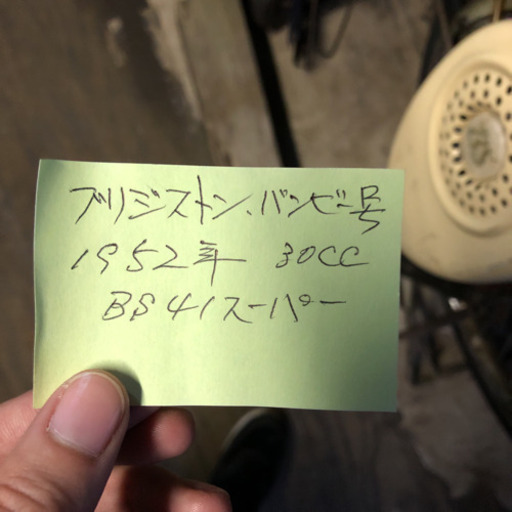 ブリジストン、バンビー号
1952年 30CC
BS41スーパー